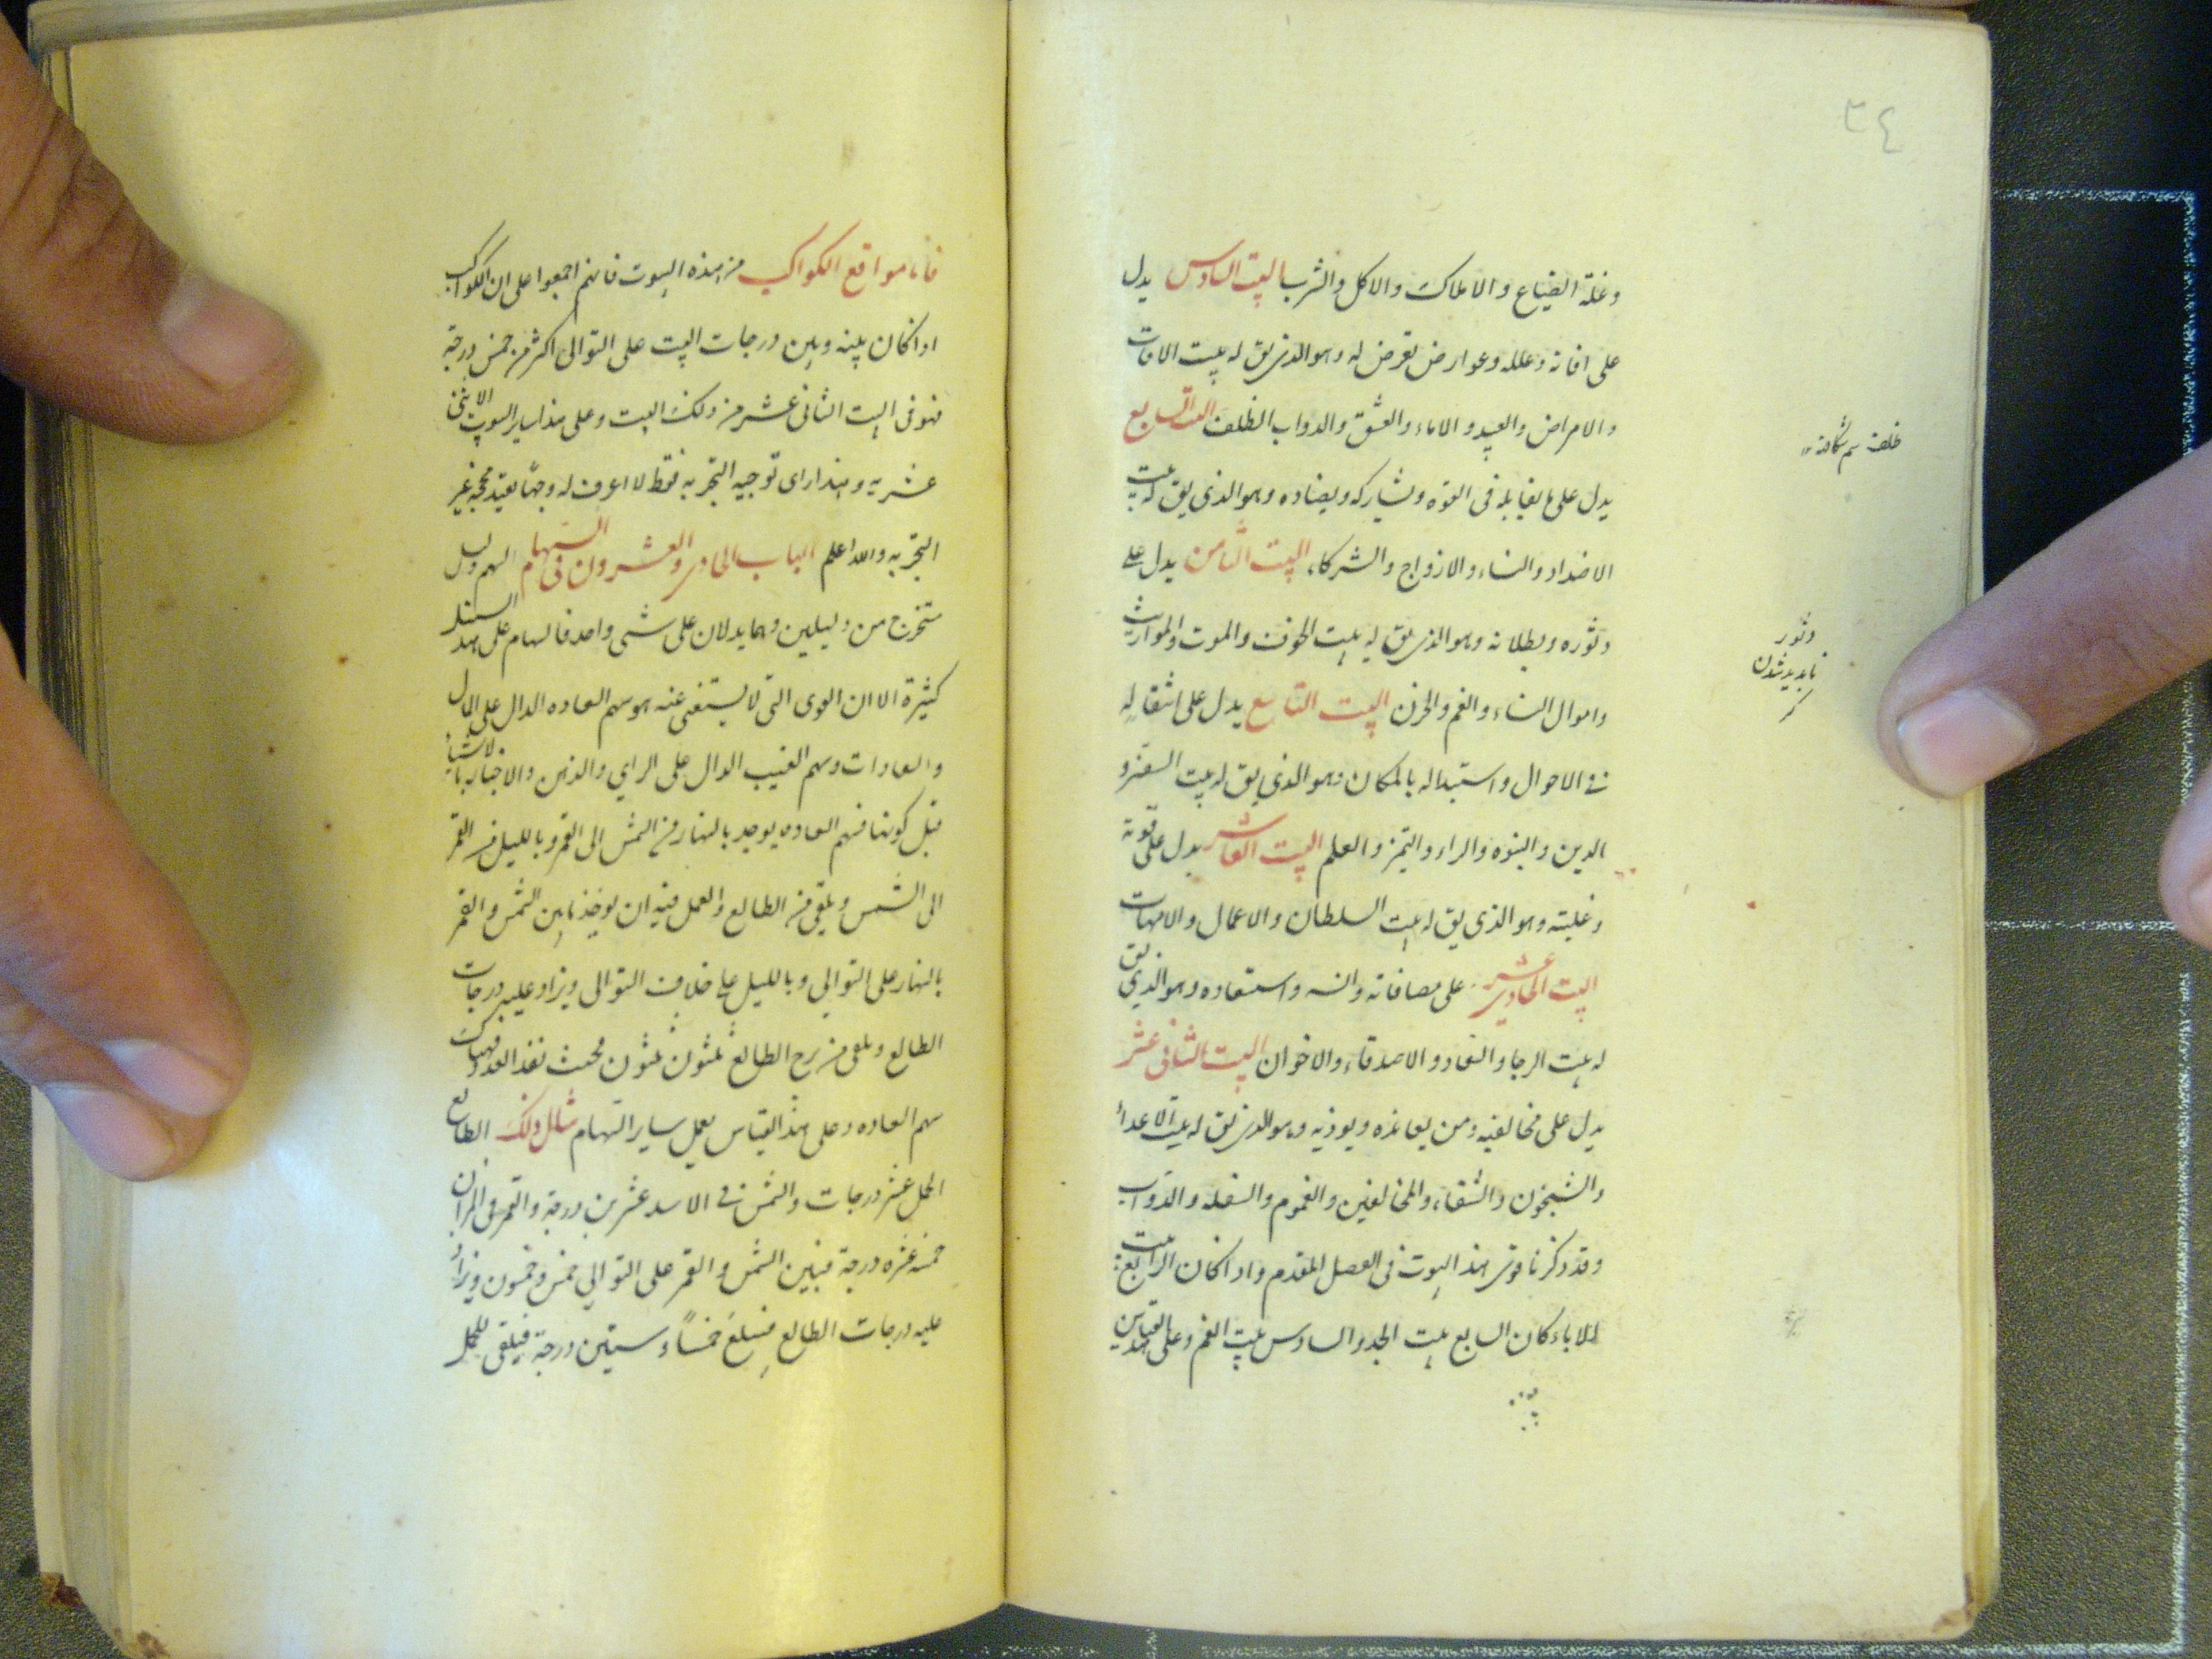 ٣٤
وغلة الضياع والاملاك والاكل والشرب البيت السادس يدل
على افاته وعلله وعوارض تعرض له وهو الذى يق له بيت الافات
والامراض والعبيد والاماء والعشق والدواب الظلف البيت السابع
يدل على ما يقابله فى القوه ويشاركه ويضاده وهو الذى يق له بيت
الاضداد والنساء والازواج والشركاء البيت الثامن يدل على
دثوره وبطلانه وهو الذى يق له بيت الخوف والموت والمواريث
واموال النساء والغم والحزن البيت التاسع يدل على انتقاله
فى الاحوال واستبداله بالمكان وهو الذى يق له بيت السفر و
الدين والنبوه والراء والتميز والعلم البيت العاشر يدل على قوته
وغلبته وهو الذى يق له بيت السلطان والاعمال والامهات
البيت الحادى عشر على مصافاته وانسه واستعاده وهو الذى يق
له بيت الرجا والسعاد والاصدقاء والاخوان البيت الثانى عشر
يدل على مخالفيه ومن يعانده ويوذيه وهو الذى يق له بيت الاعداء
والشيخون والشقاء والمخالفين والغموم والسفله والدواب
وقد ذكرنا قوى هذا البيوت فى الفصل المقدم واذا كان الرابع بيت
الاباء كان السابع بيت الجد والسادس بيت الغم وعلى هذا القياس
ظلف سم شكافته
دثور
ناپديد شدن
فاما مواقع الكواكب من هذه البيوت فانهم اجمعوا على ان الكواكب
اذا كان بينه وبين درجات البيت على التوالى اكثر من خمس درجة
فهو فى البيت الثانى عشر من ذلك البيت وعلى هذا ساير البيوت الاثنى
عشريه وهذا راى توجبه التجربه فقط لا اعرف له وجها بقيد محجه غير
التجربه والله اعلم الباب الحادى والعشرون فى السهام السهم دليل
مستخرج من دليلين وهما يدلان على شى واحد فالسهام على هذا السبيل
كثيرة الا ان القوى التى لا يستغنى عنه هو سهم السعاده الدال على المال
والسعادات وسهم الغيب الدال على الراي والذهن والاخبار بالاشياء
قبل كونها فسهم السعاده يوجد بالنهار من الشمس الى القمر وبالليل من القمر
الى الشمس ويلقى من الطالع والعمل فيه ان يوخذ ما بين الشمس والقمر
بالنهار على التوالي وبالليل على خلاف التوالى ويزاد عليه درجات
الطالع ويلقى من برج الطالع ثلثون ثلثون فحيث نفذ العدد فهناك
سهم السعاده وعلى هذا القياس يعمل ساير السهام مثال ذلك الطالع
الحمل عشر درجات والشمس فى الاسد عشرين درجة والقمر فى الميزان
خمسة عشره درجة فبين الشمس والقمر على التوالي خمس وخمسون ويزاد
عليه درجات الطالع فتبلغ خمسا وستين درجة فيلقى للحمل